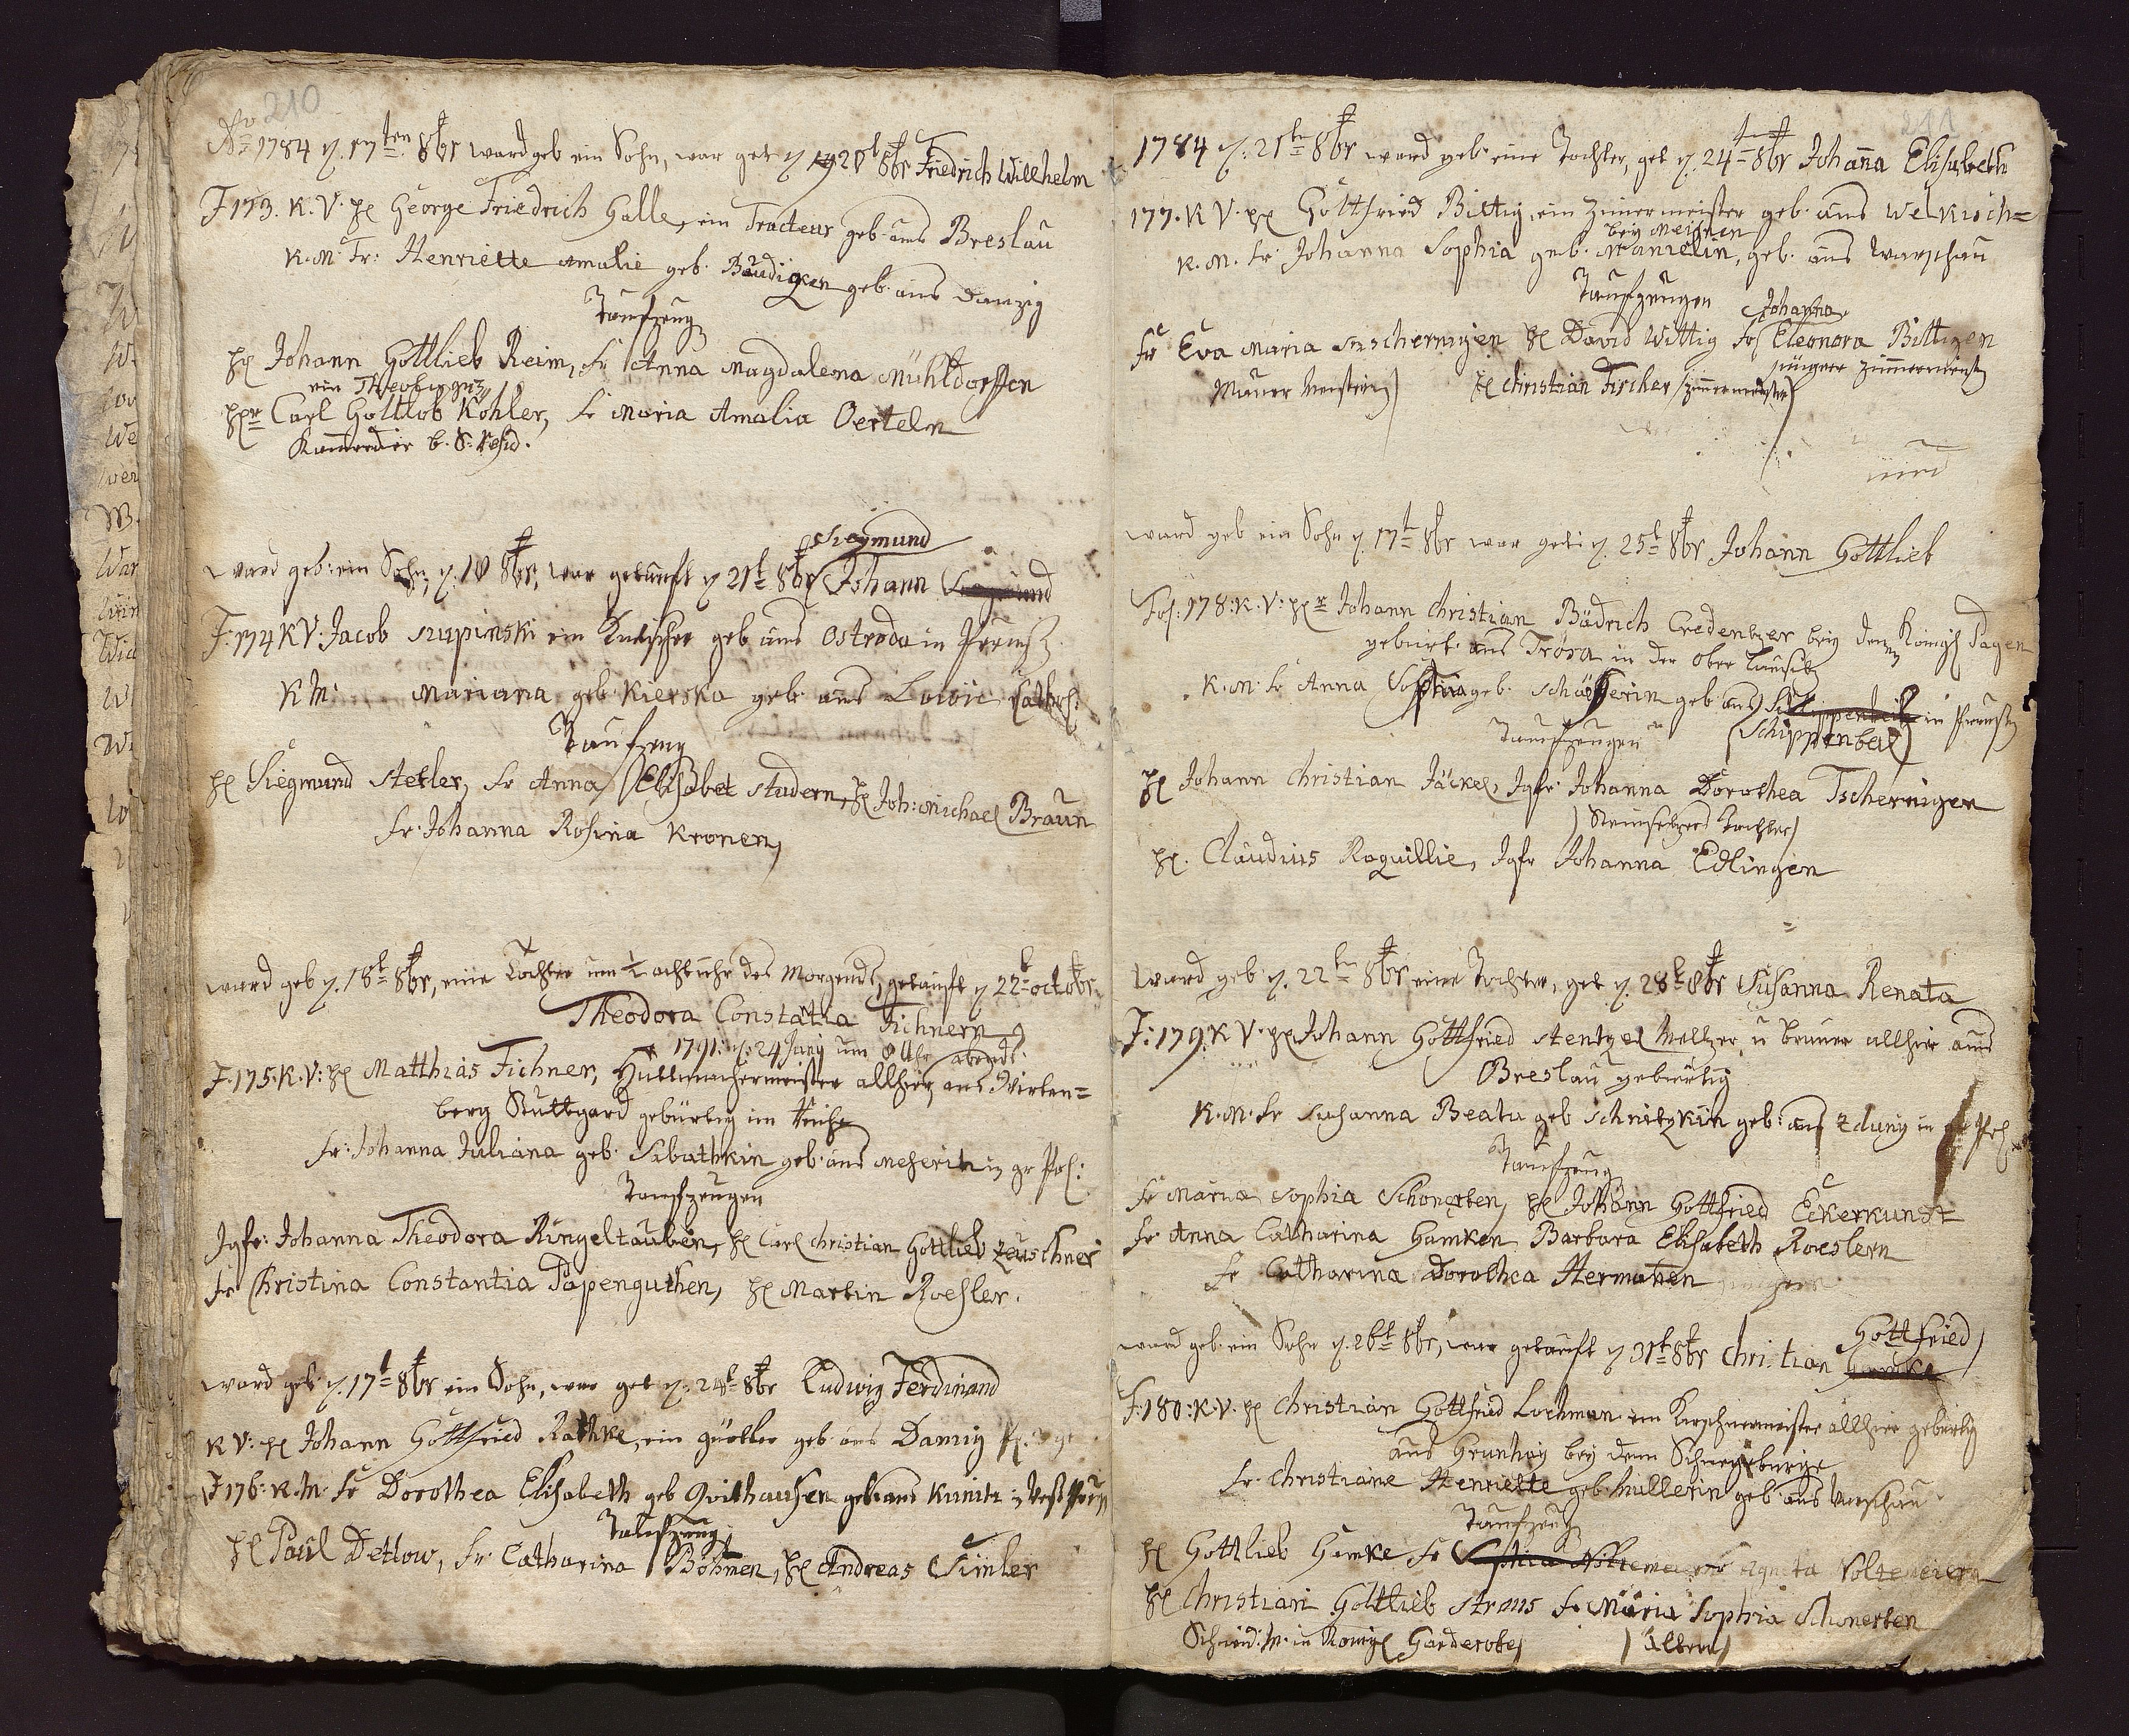 210
Ao 1784 d. 17ten 8br ward geb ein Sohn, war get d 20t 8br Friedrich Willhelm
F 173. K. V. H George Friedrich Halle, ein Tracteur geb. aus Breslau
K. M. Fr: Henriette Amalie geb. geb. aus Danzig
Taufzeug
H Johann Gottlieb Reim, Fr Anna Magdalena Mühldorffen
ein
Hr Carl Gottlob Köhler, Fr Maria Amalia Oerteln
Siegmund
ward geb: ein Sohn, d. 18 8br, war getauft d 21t 8br Johann
F: 174 K V: Jacob Szupinski ein Kutscher geb aus Ostroda in Preuß
K M: Mariana geb. Kierska geb aus Cathol:
Taufzeug
H Siegmund Stetler, Fr Anna Elisabet Studern, H Joh: Michael Braun
Fr: Johanna Rosina Kronen,
ward geb d. 18t 8br, eine Tochter um ½ acht uhr des Morgends, getauft d 22t octobr
Theodora Constatia Fichnern
1791. d. 24 Juny um 8 Uhr abends.
F. 175. K. V: H Matthias Fichner, Huttmachermeister allhier, aus Wirten=
berg Stuttgard gebürtig im Reiche
Fr: Johanna Juliana geb. Sibathkin geb. aus Meseritz in gr Pol:
Taufzeugen
Jgfr: Johanna Theodora Ringeltauben, H Carl Christian Gottlieb Zeuschner
Fr Christina Constantia Papenguthen, H Martin Roesler.
ward geb. d. 17t 8br ein Sohn, war get d. 24t 8br Ludwig Ferdinand
K V: H Johann Gottfried Rathke, ein geb. aus Danzig
F 176: K. M. Fr Dorothea Elisabeth geb Qvithausen geb: aus Kunitz in West
Taufzeug
H Paul Detlow, Fr: Catharina Böhmen, H Andreas Timler
211
1784 d. 21tn 8br ward geb. eine Tochter, get d. 24t 8br Johanna Elisabeth
177. K V. H Gottfried Bittig, ein Zimermeister geb. aus Welkisch=
bey Meissen
K. M. Fr. Johanna Sophia geb. Manielin, geb. aus Warschau
Taufzeugen Johanna
Fr Eva Maria Tschernigen H David Wittig Fr Eleonora Bittigen
Maurer Meisterin H Christian Fischer Zimmermeister
und
ward geb ein Sohn d. 17t 8br war get: d. 25t 8br Johann Gottlieb
Fol: 178: K. V: Hr Johann Christian Bädrich Credentzer bey den Königl Pagen
gebürt. aus Tröra in der ober Lausitz
K. M. Fr Anna Sophia geb. Schäfferin geb aus in Preuß
Taufzeugen Schippenbeil
H Johann Christian Jäckel, Jgfr Johanna Dorothea Tschernigen
Steinsetzers Tochter
H. Claudius Roquillie, Jgfr Johanna Edlingen
ward geb d. 22tn 8br eine Tochter, get d. 28t 8br Susanna Renata
F: 179. K V. H Johann Gottfried Stentzel Meltzer u Brauer allhier aus
Breslau gebürtig
K. M. Fr Susanna Beata geb Schnitzkin geb: aus Zduny in Pol
Taufzeug
Fr Maria Sophia Schonerten, H Johann Gottfried Eckerkunst
Fr. Anna Catharina Hamken Barbara Elisabeth Roeslern
Fr Catharina Dorothea Hermanen
ward geb. ein Sohn d. 26t 8br, war getauft d 31t 8br Christian Gottfried
F: 180: K. V. H Christian Gottfried Lochman ein Kirschnermeister allhier gebürtig
aus Grunhay bey dem
Fr. Christiane Henriette geb. Mullerin geb. aus Warschau
Taufzeug
H Gottlieb Hamke Fr Agneta Voltemeiern
H Christian Gottlieb Straus Fr Maria Sophia Schonerten
Schneid: M. in Königl Garderobe